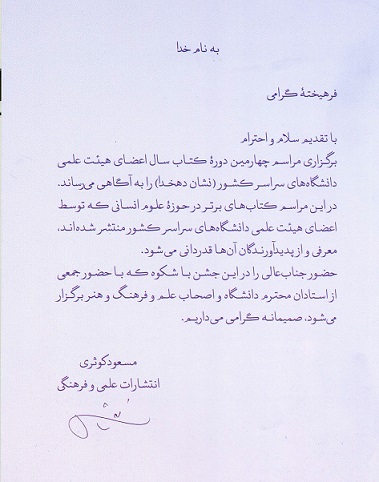 به نام خدا
فرهیختهٔ گرامی
با تقدیم سلام و احترام
برگزاری مراسم چهارمین دورهٔ کتاب سال اعضای هیئت علمی
دانشگاه‌های سراسر کشور (نشان دهخدا) را به آگاهی می‌رساند.
در این مراسم کتاب‌های برتر در حوزهٔ علوم انسانی که توسط
اعضای هیئت علمی دانشگاه‌های سراسر کشور منتشر شده‌اند،
معرفی و از پدیدآورندگان آن‌ها قدردانی می‌شود.
حضور جناب‌عالی را در این جشن با شکوه که با حضور جمعی
از استادان محترم دانشگاه و اصحاب علم و فرهنگ و هنر برگزار
می‌شود، صمیمانه گرامی می‌داریم.
مسعود کوثری
انتشارات علمی و فرهنگی